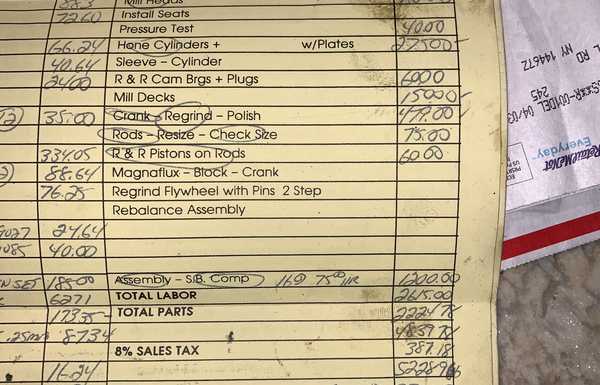 883 Mill Heads
72.60 Install Seats
Pressure Test 40.00
66.24 Hone Cylinders + w/Plates 275.00
40.64 Sleeve - Cylinder
24.00 R & R Cam Brgs + Plugs 60.00
Mill Decks 150.00
35.00 Crank - Regrind - Polish 479.00
Rods - Resize - Check Size 75.00
334.05 R & R Pistons on Rods 60.00
88.64 Magnaflux - Block - Crank
76.25 Regrind Flywheel with Pins 2 Step
Rebalance Assembly
24.64
40.00
SET 185.00 Assembly - S.B. Comp 16@ 75.00 HR 1200.00
62.71 TOTAL LABOR 2615.00
173.35 TOTAL PARTS 2224.78
87.34 4839.78
8% SALES TAX 387.18
11.24 5228.96
RD NY 14467Z
245
04/03
RetailMeNot
Everyday